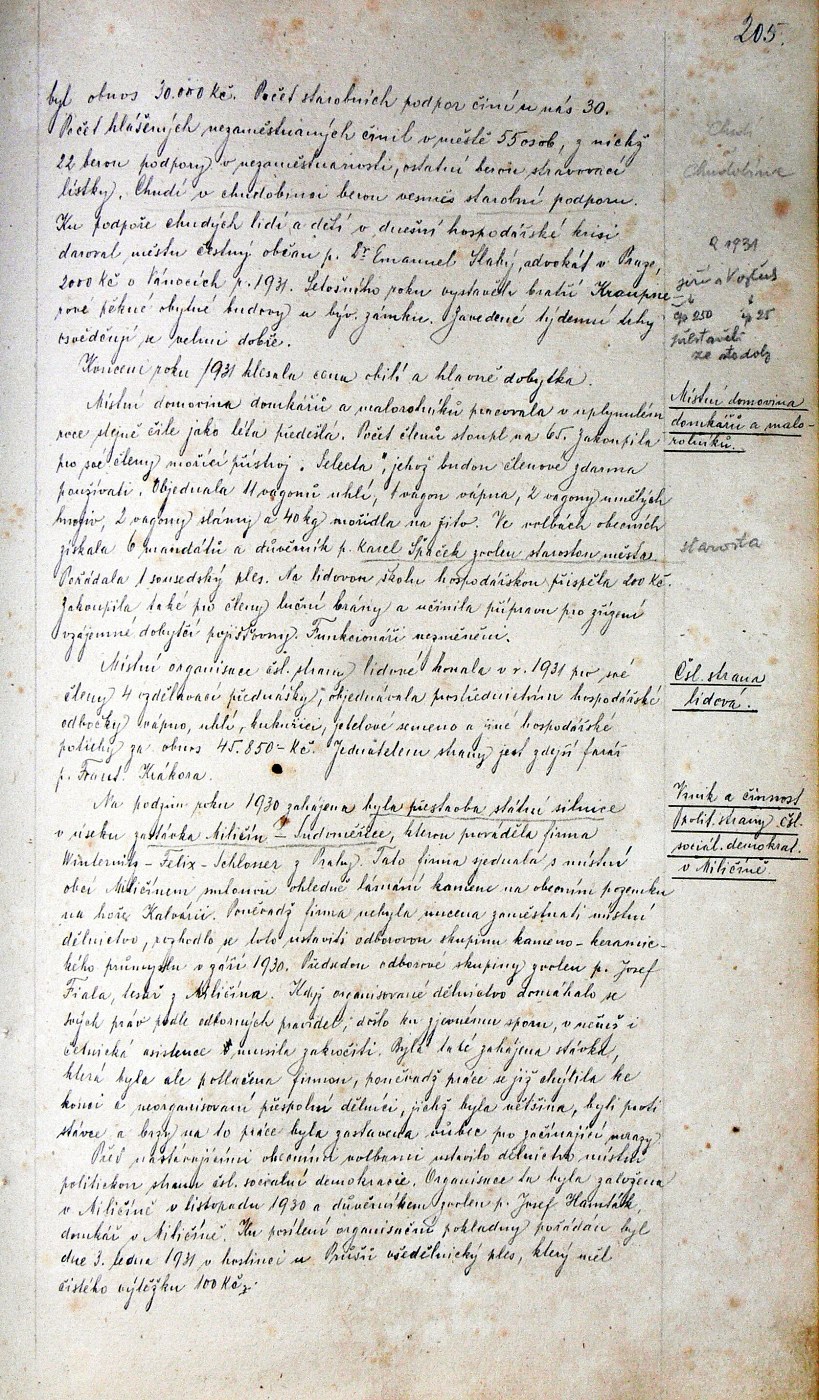 205.
byl obnos 30.000 Kč. Počet starobních podpor činí u nás 30.
Počet hlášených nezaměstnaných činil v městě 55 osob, z nichž
22 berou podpory v nezaměstnanosti, ostatní berou stravovací
lístky. Chudí v chudobinci berou vesměs starobní podporu.
Chudobinec
Ku podpoře chudých lidí a dětí v dnešní hospodářské krisi
daroval městu čestný občan p. Dr Emanuel Slabý, advokát v Praze,
2000 Kč o Vánocích r. 1931. Letošního roku vystavěli bratří Kroupne-
rové pěkné obytné budovy u býv. zámku. Zavedené týdenní trhy
osvědčují se velmi dobře.
R 1931
Jiří a Vojtěch
čp 250 čp 25
přestavěli
ze stodoly
Koncem roku 1931 klesala cena obilí a hlavně dobytka.
Místní domovina domkářů a malorolníků pracovala v uplynulém
roce stejně čile jako léta předešlá. Počet členů stoupl na 65. Zakoupila
pro své členy mořící přístroj „Selecta“, jehož budou členové zdarma
používati. Objednala 11 vagonů uhlí, 1 vagon vápna, 2 vagony umělých
hnojiv, 2 vagony slámy a 40 kg mořidla na žito. Ve volbách obecních
získala 6 mandátů a důvěrník p. Karel Špaček zvolen starostou města.
Pořádala 1 sousedský ples. Na lidovou školu hospodářskou přispěla 200 Kč.
Zakoupila také pro členy luční brány a učinila přípravu pro zřízení
vzájemné dobytčí pojišťovny. Funkcionáři nezměněni.
Místní domovina
domkářů a malo-
rolníků.
starosta
Místní organisace čsl. strany lidové konala v r. 1931 pro své
členy 4 vzdělávací přednášky, objednávala prostřednictvím hospodářské
odbočky vápno, uhlí, kukuřici, jetelové semeno a jiné hospodářské
potřeby za obnos 45.850 – Kč. Jednatelem strany jest zdejší farář
p. Frant. Krákora.
Čsl. strana
lidová.
Na podzim roku 1930 zahájena byla přestavba státní silnice
v úseku zastávka Miličín – Sudoměřice, kterou prováděla firma
Winternits – Felix – Schlosser z Prahy. Tato firma sjednala s místní
obcí Miličínem smlouvu ohledně lámání kamene na obecním pozemku
na hoře Kalvárii. Poněvadž firma nebyla nucena zaměstnati místní
dělnictvo, rozhodlo se toto ustaviti odborovou skupinu kameno-keramic-
kého průmyslu v září 1930. Předsedou odborové skupiny zvolen p. Josef
Fiala, tesař z Miličína. Když organisované dělnictvo domáhalo se
svých práv podle odborných pravidel, došlo ku zjevnému sporu, v němž i
četnická asistence musila zakročiti. Byla také zahájena stávka,
která byla ale potlačena firmou, poněvadž práce se již chýlila ke
konci a neorganisovaní přespolní dělníci, jichž byla většina, byli proti
stávce a brzy na to práce byla zastavena vůbec pro začínající mrazy.
Vznik a činnost
polit. strany čsl.
sociál. demokrat.
v Miličíně.
Před nastávajícími obecními volbami ustavilo dělnictvo místní
politickou stranu čsl. sociální demokracie. Organisace ta byla založena
v Miličíně v listopadu 1930 a důvěrníkem zvolen p. Josef
domkář v Miličíně. Ku posílení organisační pokladny pořádán byl
dne 3. ledna 1931 v hostinci u Průšů všedělnický ples, který měl
čistého výtěžku 100 Kč.